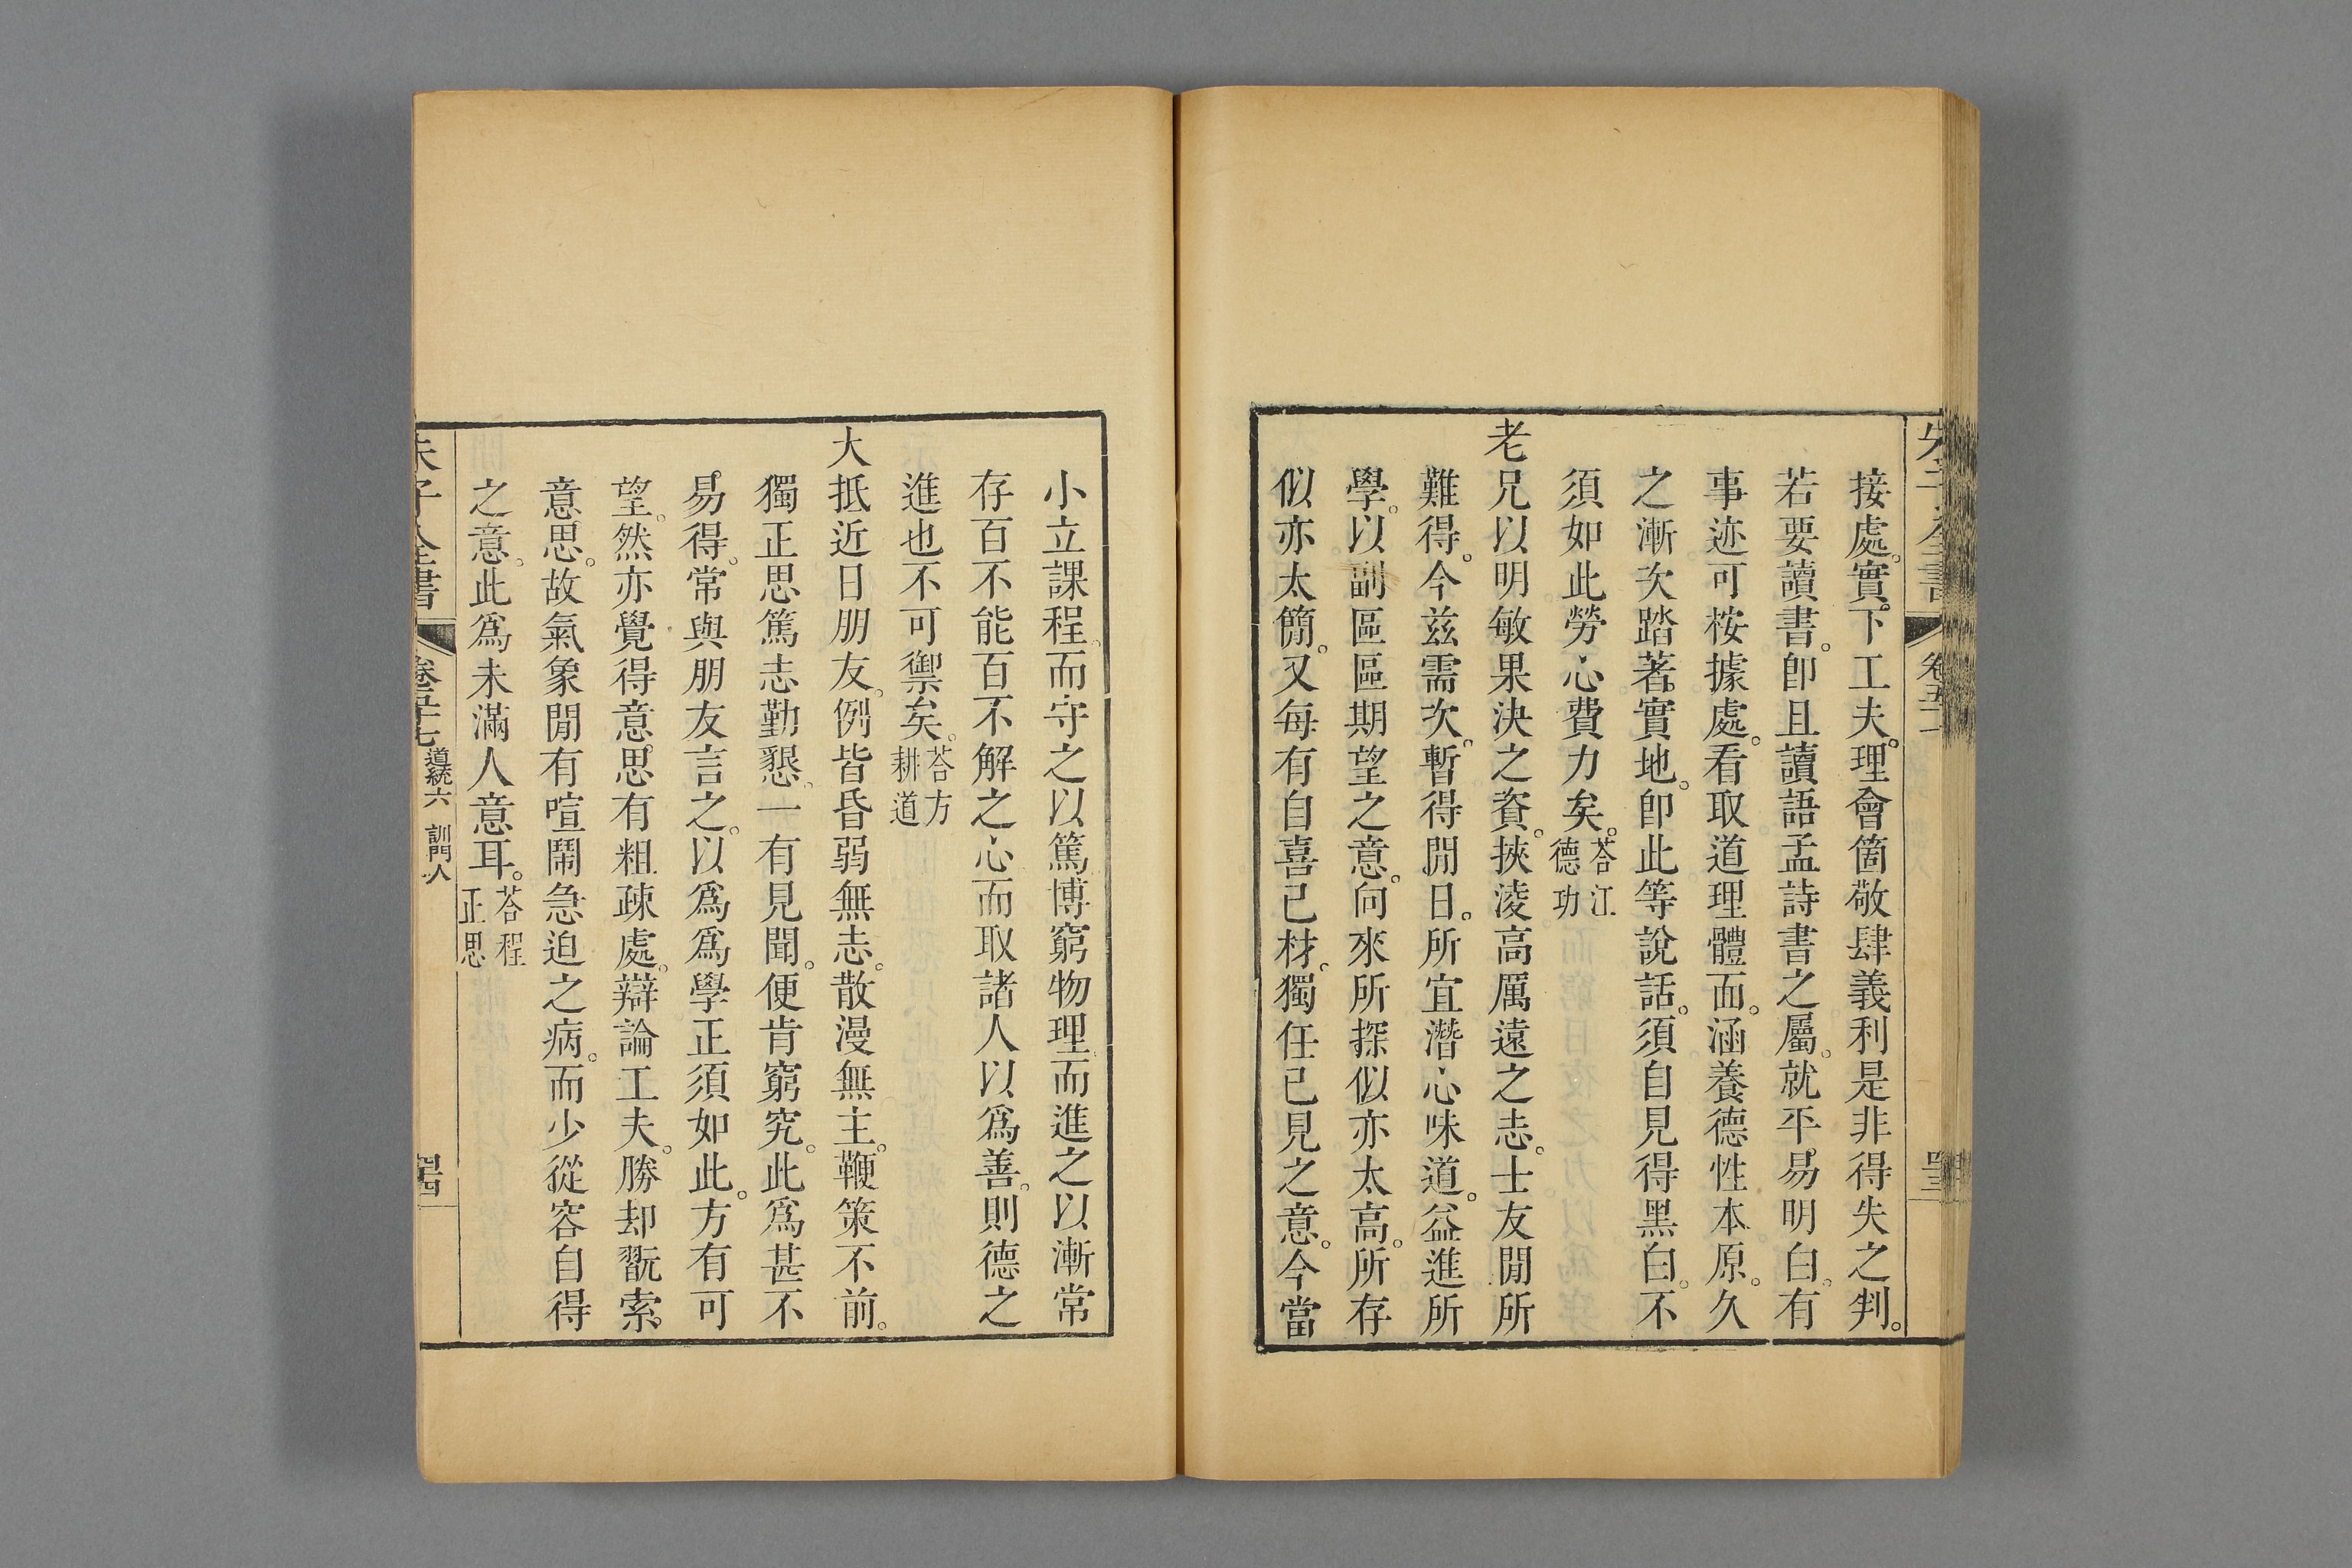 接處。實下工夫。理會箇敬肆義利是非得失之判。
若要讀書。卽且讀語孟詩書之屬。就平易明白。有
事迹可桉據處。看取道理體面。涵養德性本原。久
之漸次踏著實地。卽此等說話。須自見得黑白。不
須如此勞心費力矣。荅江德功
老兄以明敏果決之資。挾淩高厲遠之志。士友閒所
難得。今茲需次。暫得閒日。所宜潛心味道。益進所
學。以副區區期望之意。向來所探似亦太高。所存
似亦太簡。又每有自喜已材。獨任已見之意。今當
小立課程。而守之以篤。博窮物理。而進之以漸。常
存百不能百不解之心而取諸人以爲善。則德之
進也不可禦矣。荅方耕道
大抵近日朋友。例皆昏弱無志。散漫無主。鞭策不前。
獨正思篤志勤懇。一有見聞。便肯窮究。此爲甚不
易得。常與朋友言之。以爲爲學正須如此。方有可
望。然亦覺得意思有粗疎處。辯論工夫。勝却翫索。
意思。故氣象閒有喧鬧急迫之病。而少從容自得
之意。此爲未滿人意耳。荅程正思
朱子全書
卷五十七
道統六 訓門人